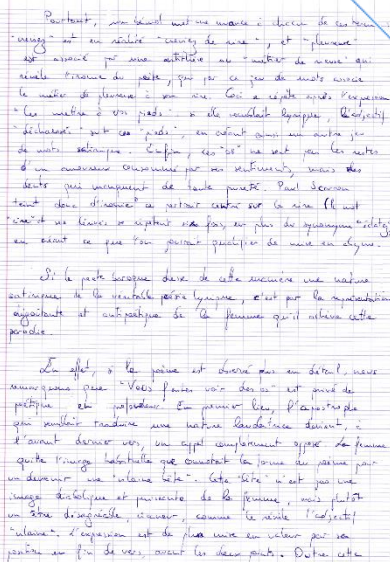 Pourtant, un second met une nuance à chacun de ces termes
"crevez" est en réalité "crevez de rire", et "pleureuse"
est associé par une antithèse au "métier de rieuse" qui
révèle l'ironie du poète, qui par ce jeu de mots associe
le métier de pleureuse à son rire. Ceci se répète après l'expression
"les mettre à vos pieds": si elle semblait lyrique, l'adjectif
"déchaussés" suit ces "pieds", en créant ainsi un autre jeu
de mots satirique. Enfin, ces "os" ne sont pas les restes
d'un amoureux consumé par ses sentiments, mais des
dents qui manquent de toute pureté. Paul Scarron
teint donc d'ironie ce portrait centré sur le rire (le mot
"rire" et se répètent six fois, en plus du synonyme "éclatez
en créant ce que l'on pourrait qualifier de mise en abyme.
Si le poète baroque dresse de cette manière une nature
satirique de la véritable poésie lyrique, c'est par la représentation
dégoûtante et antipoétique de la femme qu'il achève cette
parodie.
En effet, si le poème est observé plus en détail, nous
remarquons que "Vous faites voir des os" est privé de
poétique en profondeur. En premier lieu, l'apostrophe
qui semblait traduire une nature laudatrice devient, à
l'avant dernier vers, un appel complètement opposé. La femme
quitte l'image habituelle que connotait la forme du poème pour
un devenir une "vilaine bête". Cette "bête" n'est pas une
image diabolique et puissante de la femme, mais plutôt
un être désagréable, comme le révèle l'adjectif
"vilaine". L'expression est de plus mise en valeur par sa
position en fin de vers, avant les deux points. Outre cette